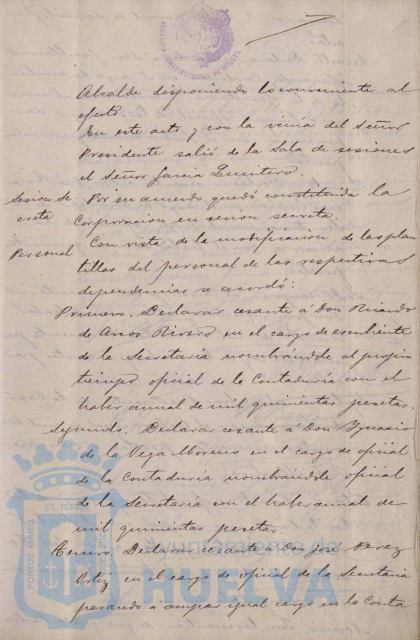 Alcalde disponiendo lo conveniente al
efecto.
En este acto y con la venia del Señor
Presidente salió de la Sala de sesiones
el Señor Garcia
Sesion Se
creta
Por su acuerdo quedó constituida la
Corporacion en sesion secreta.
Personal
Con vista de la modificacion de las plan
tillas del personal de las respetivas
dependencias se acordó:
Primero. Declarar cesante á Don Ricardo
de Arcos Rivero en el cargo de escribiente
de la Secretaría nombrándole al propio
tiempo oficial de la Contaduría con el
haber anual de mil quinientas pesetas.
Segundo. Declarar cesante á Don Ygnacio
de la Vega Moreno en el cargo de oficial
de la Contaduría nombrándole oficial
de la Secretaría con el haber anual de
mil quinientas pesetas.
Tercero. Declarar cesante á Don José Perez
Ortiz en el cargo de oficial de la Secretaría
pasando á ocupar igual cargo en la Conta
PORTUS MARIS
ET TERRE
Ayuntamiento de
HUELVA